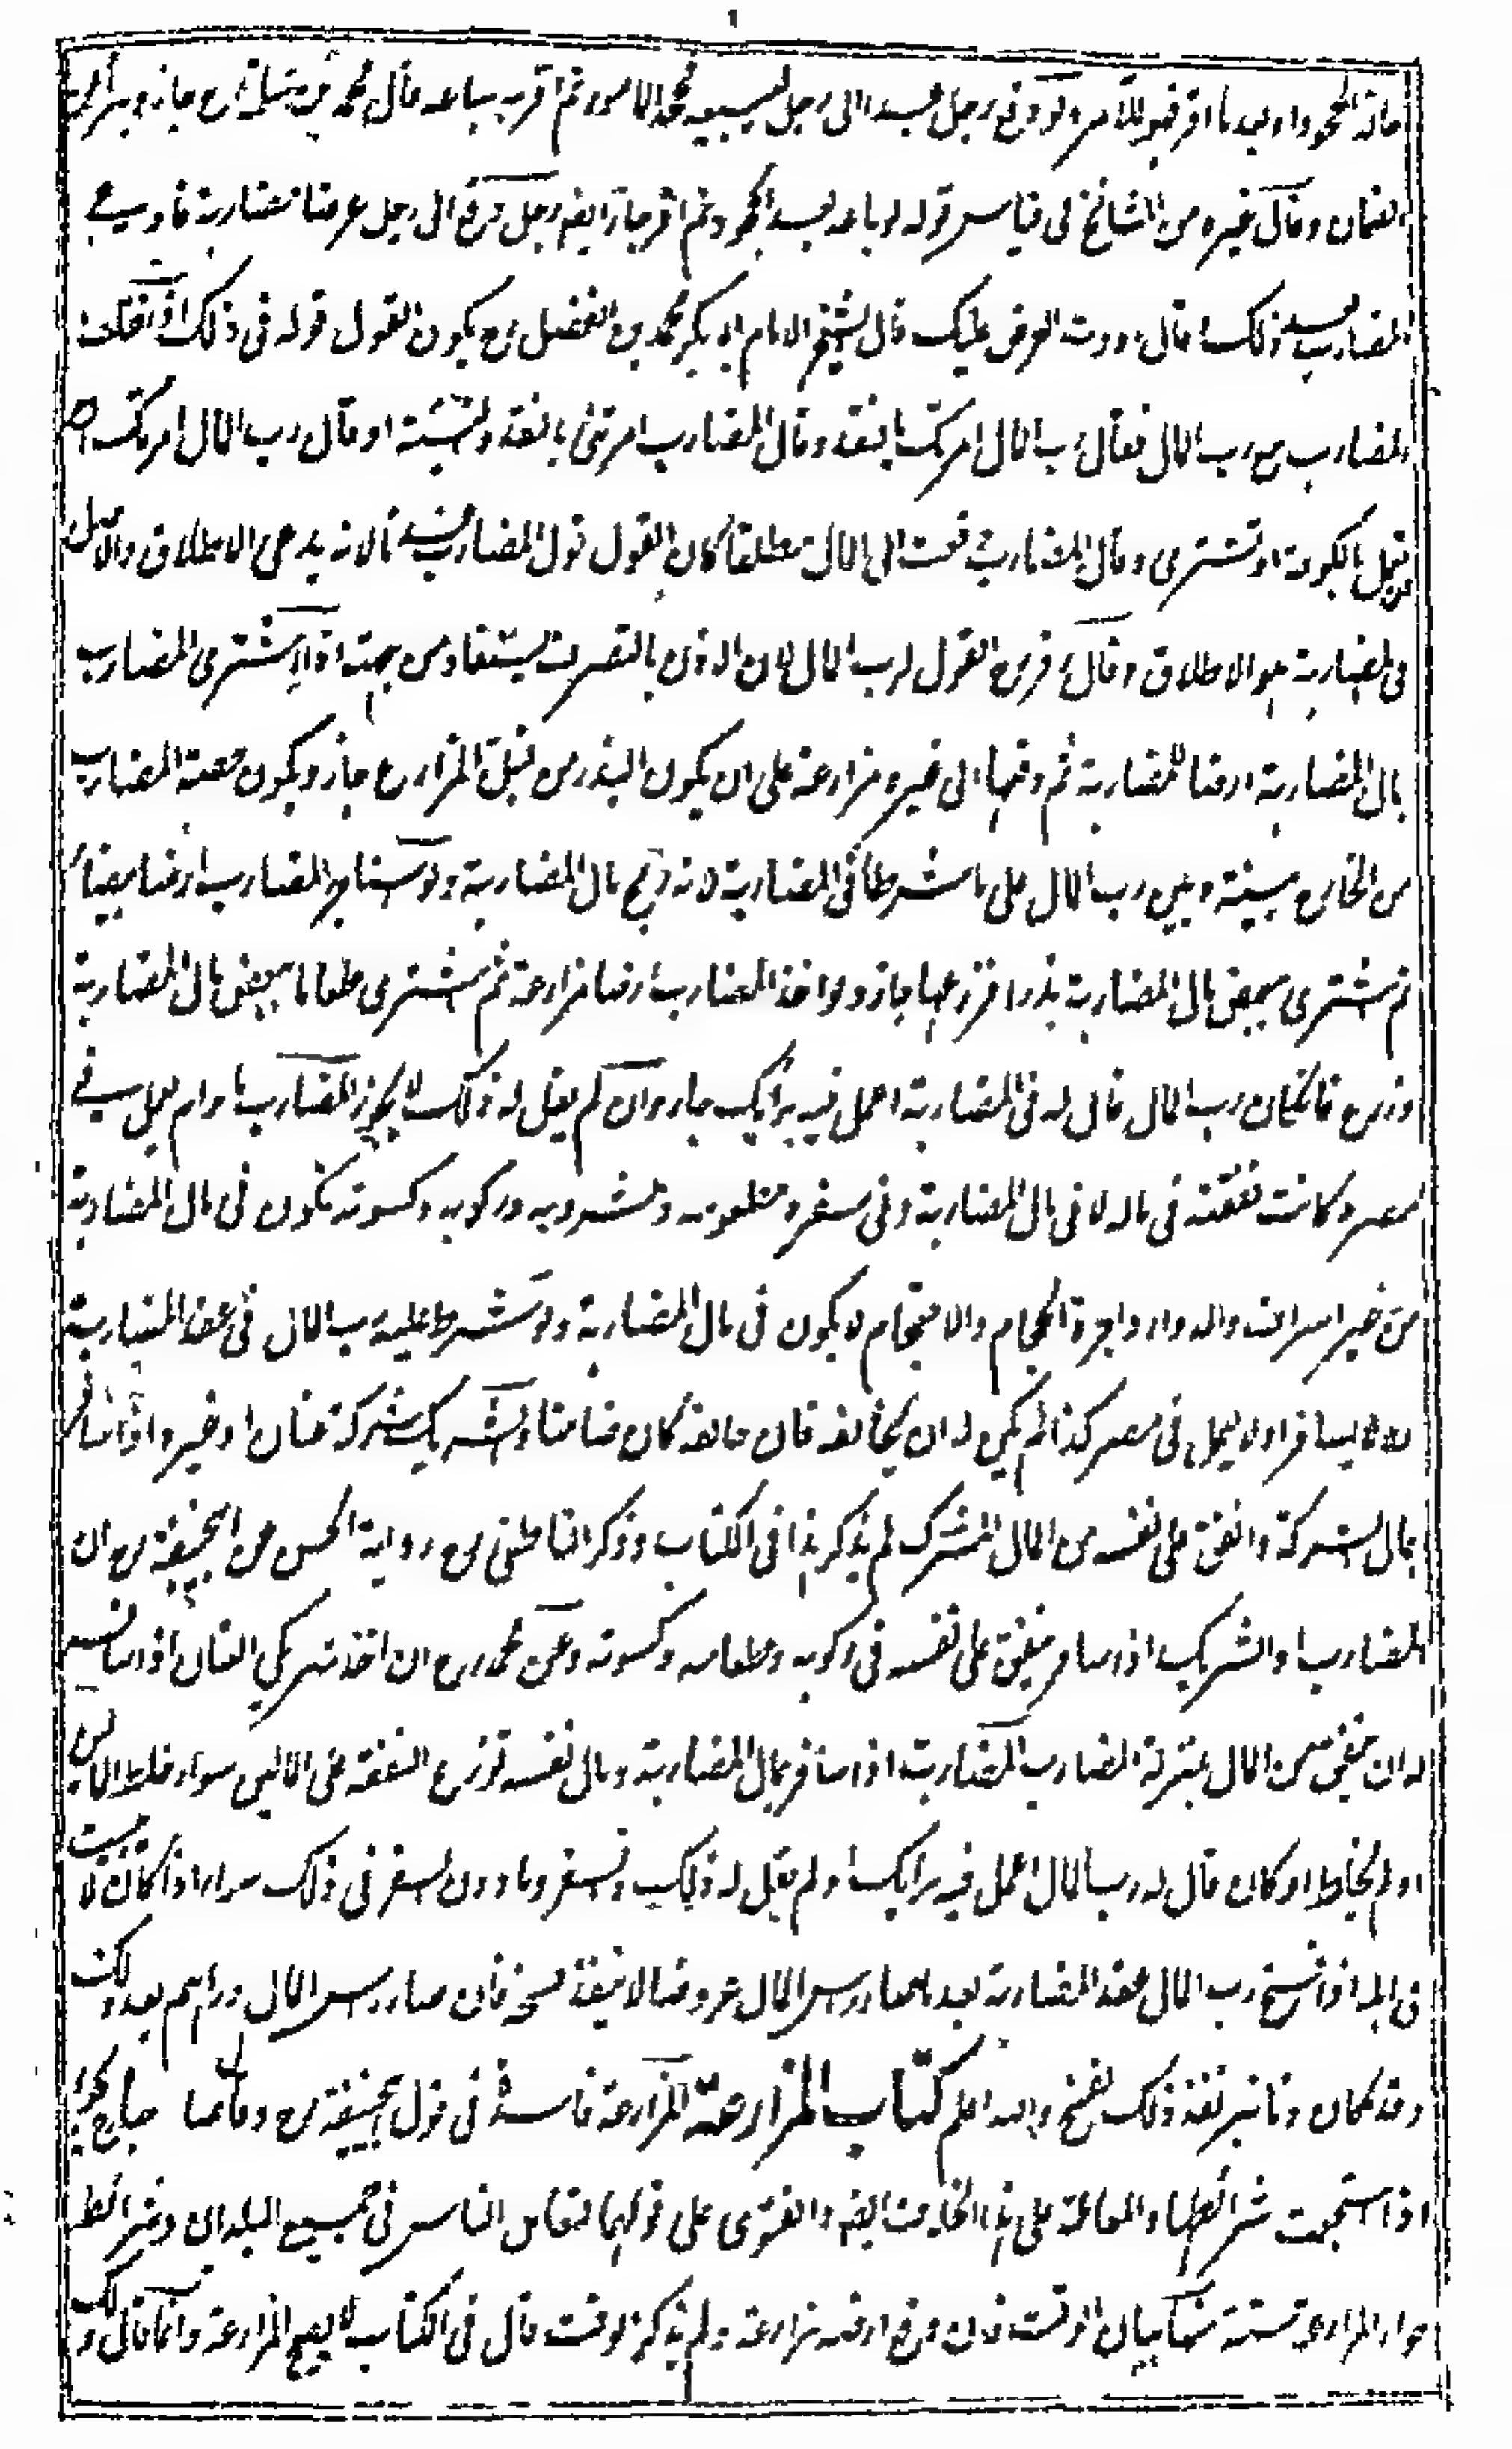 حالة الجحود او بعد ما اقر فهو للآمر ولو دفع رجل عبدا الى رجل ليبيعه فجحد المامور ثم اقر به فباعه قال محمد بن سلمة رح جاز ويبرأ من
الضمان وقال غيره من المشائخ فى قياس قوله لو باعه بعد الجحود ثم اقر جاز ايضا رجل دفع الى رجل عرضا مضاربة فادعى
المضارب بعد ذلك وقال رددت العرض عليك قال الشيخ الامام ابو بكر محمد بن الفضل رح يكون القول قوله فى ذلك اذا اختلف
المضارب مع رب المال فقال رب المال امرتك بالنقد وقال المضارب امرتنى بالنقد والنسيئة او قال رب المال امرتك ان
تعمل بالكوفة او تشترى وقال المضارب دفعت الى المال مطلقا كان القول قول المضارب عندنا لانه يدعى الاطلاق والاصل
فى المضاربة هو الاطلاق وقال زفر رح القول لرب المال لان الاذن بالتصرف يستفاد من جهته اذا اشترى المضارب
بمال المضاربة ارضا للمضاربة ثم دفعها الى غيره مزارعة على ان يكون البذر من قبل المزارع جاز ويكون حصة المضارب
من الخارج بينه وبين رب المال على ما شرطا فى المضاربة لانه ربح مال المضاربة ولو استاجر المضارب ارضا بيضاء
ثم اشترى ببعض مال المضاربة بذرا فزرعها جاز ولو اخذ المضارب ارضا مزارعة ثم اشترى طعاما ببعض مال المضاربة
وزرع فان كان رب المال قال له فى المضاربة اعمل فيه برأيك جاز وان لم يقل له ذلك لا يجوز المضارب ما دام يعمل فى
المصر كانت نفقته فى ماله لا فى مال المضاربة وفى سفره مطعومه ومشروبه وركوبه وكسوته تكون فى مال المضاربة
من غير اسراف والدواء واجرة الحجام والاحتجام لا يكون فى مال المضاربة ولو شرط عليه رب المال فى عقد المضاربة
ان لا يسافر او لا يعمل فى مصر كذا لم يكن له ان يخالفه فان خالفه كان ضامنا والشريك شركة عنان او غيره اذا سافر
بمال الشركة وانفق على نفسه من المال المشترك لم يذكر هذا فى الكتاب وذكر الناطفى رح رواية الحسن عن ابى حنيفة رح ان
المضارب او الشريك اذا سافر ينفق على نفسه فى ركوبه وطعامه وكسوته وعن محمد رح ان احد شريكى العنان اذا سافر
له ان ينفق من المال بمنزلة المضارب المضارب اذا سافر بمال المضاربة ومال نفسه توزع النفقة على المالين سواء خلط المالين
او لم يخلط او كان قال له رب المال اعمل فيه برأيك او لم يقل له ذلك والسفر وما دون السفر فى ذلك سواء اذا كان لا يبيت
فى اهله اذا فسخ رب المال عقد المضاربة بعد ما صار رأس المال عروضا لا ينفذ فسخه فان صار رأس المال دراهم بعد ذلك
وقد كان دنانير نفذ ذلك الفسخ والله اعلم كتاب المزارعة المزارعة فاسدة فى قول ابى حنيفة رح وقالا جائزة
اذا استجمعت شرائطها والمعاملة على هذا الخلاف ايضا والفتوى على قولهما لتعامل الناس فى جميع البلدان وشرائط
جواز المزارعة ستة منها بيان الوقت فان دفع ارضه مزارعة ولم يذكر الوقت قال فى الكتاب لا يصح المزارعة وانما قال ذلك